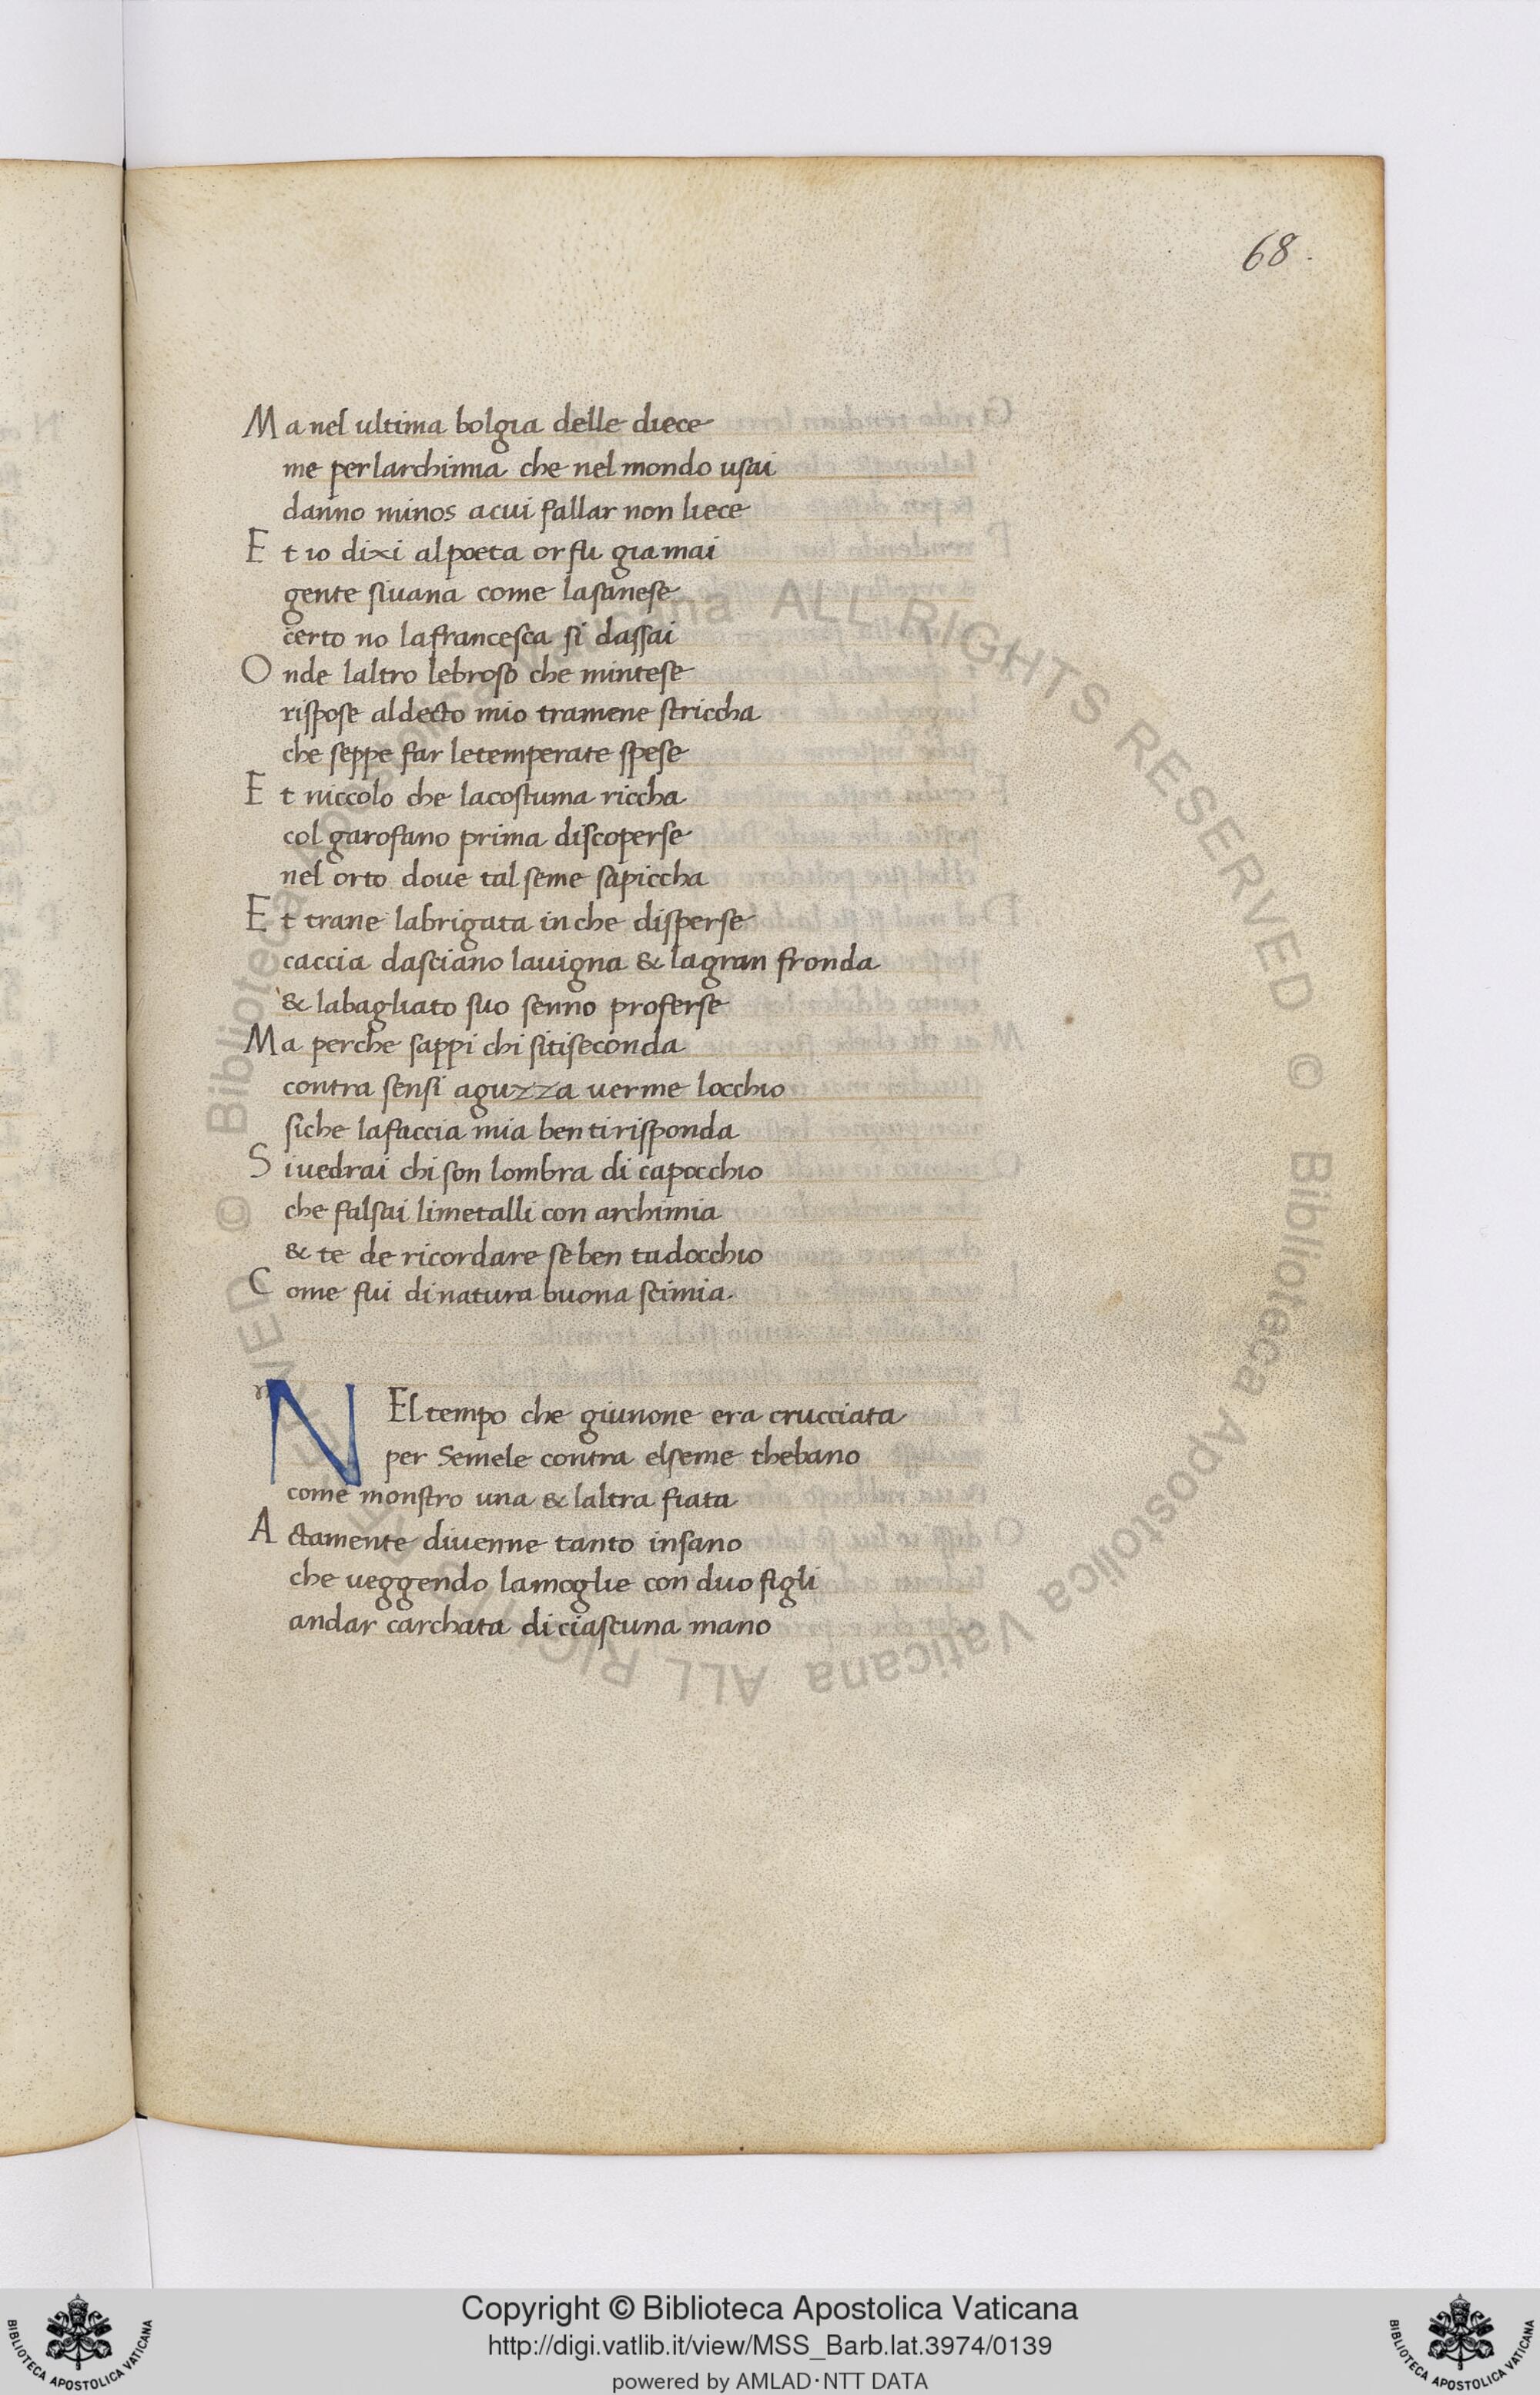 68.
Ma nel ultima bolgia delle diece
me perlarchimia che nel mondo usai
danno minos acui fallar non liece
Et io dixi alpoeta or fu giamai
gente sivana come lasanese
certo no lafrancesca si dassai
Onde laltro lebroso che mintese
rispose aldecto mio tramene striccha
che seppe far letemperate spese
Et niccolo che lacostuma riccha
col garofano prima discoperse
nel orto dove tal seme sapiccha
Et trane labrigata inche disperse
caccia dasciano lavigna & lagran fronda
& labagliato suo senno proferse
Ma perche sappi chi sitiseconda
contra sensi aguzza verme locchio
siche lafaccia mia bentirisponda
Sivedrai chi son lombra di capocchio
che falsai limetalli con archimia
& te de ricordare se ben tadocchio
Come fui dinatura buona scimia.
NEl tempo che giunone era crucciata
per Semele contra elseme thebano
come monstro una & laltra fiata
Actamente divenne tanto insano
che veggendo lamoglie con duo figli
andar carchata diciascuna mano
© Biblioteca Apostolica Vaticana ALL RIGHTS RESERVED © Biblioteca Apostolica Vaticana ALL RIGHTS RESERVED
Copyright © Biblioteca Apostolica Vaticana
http://digi.vatlib.it/view/MSS_Barb.lat.3974/0139
powered by AMLAD·NTT DATA
BIBLIOTECA APOSTOLICA VATICANA
BIBLIOTECA APOSTOLICA VATICANA